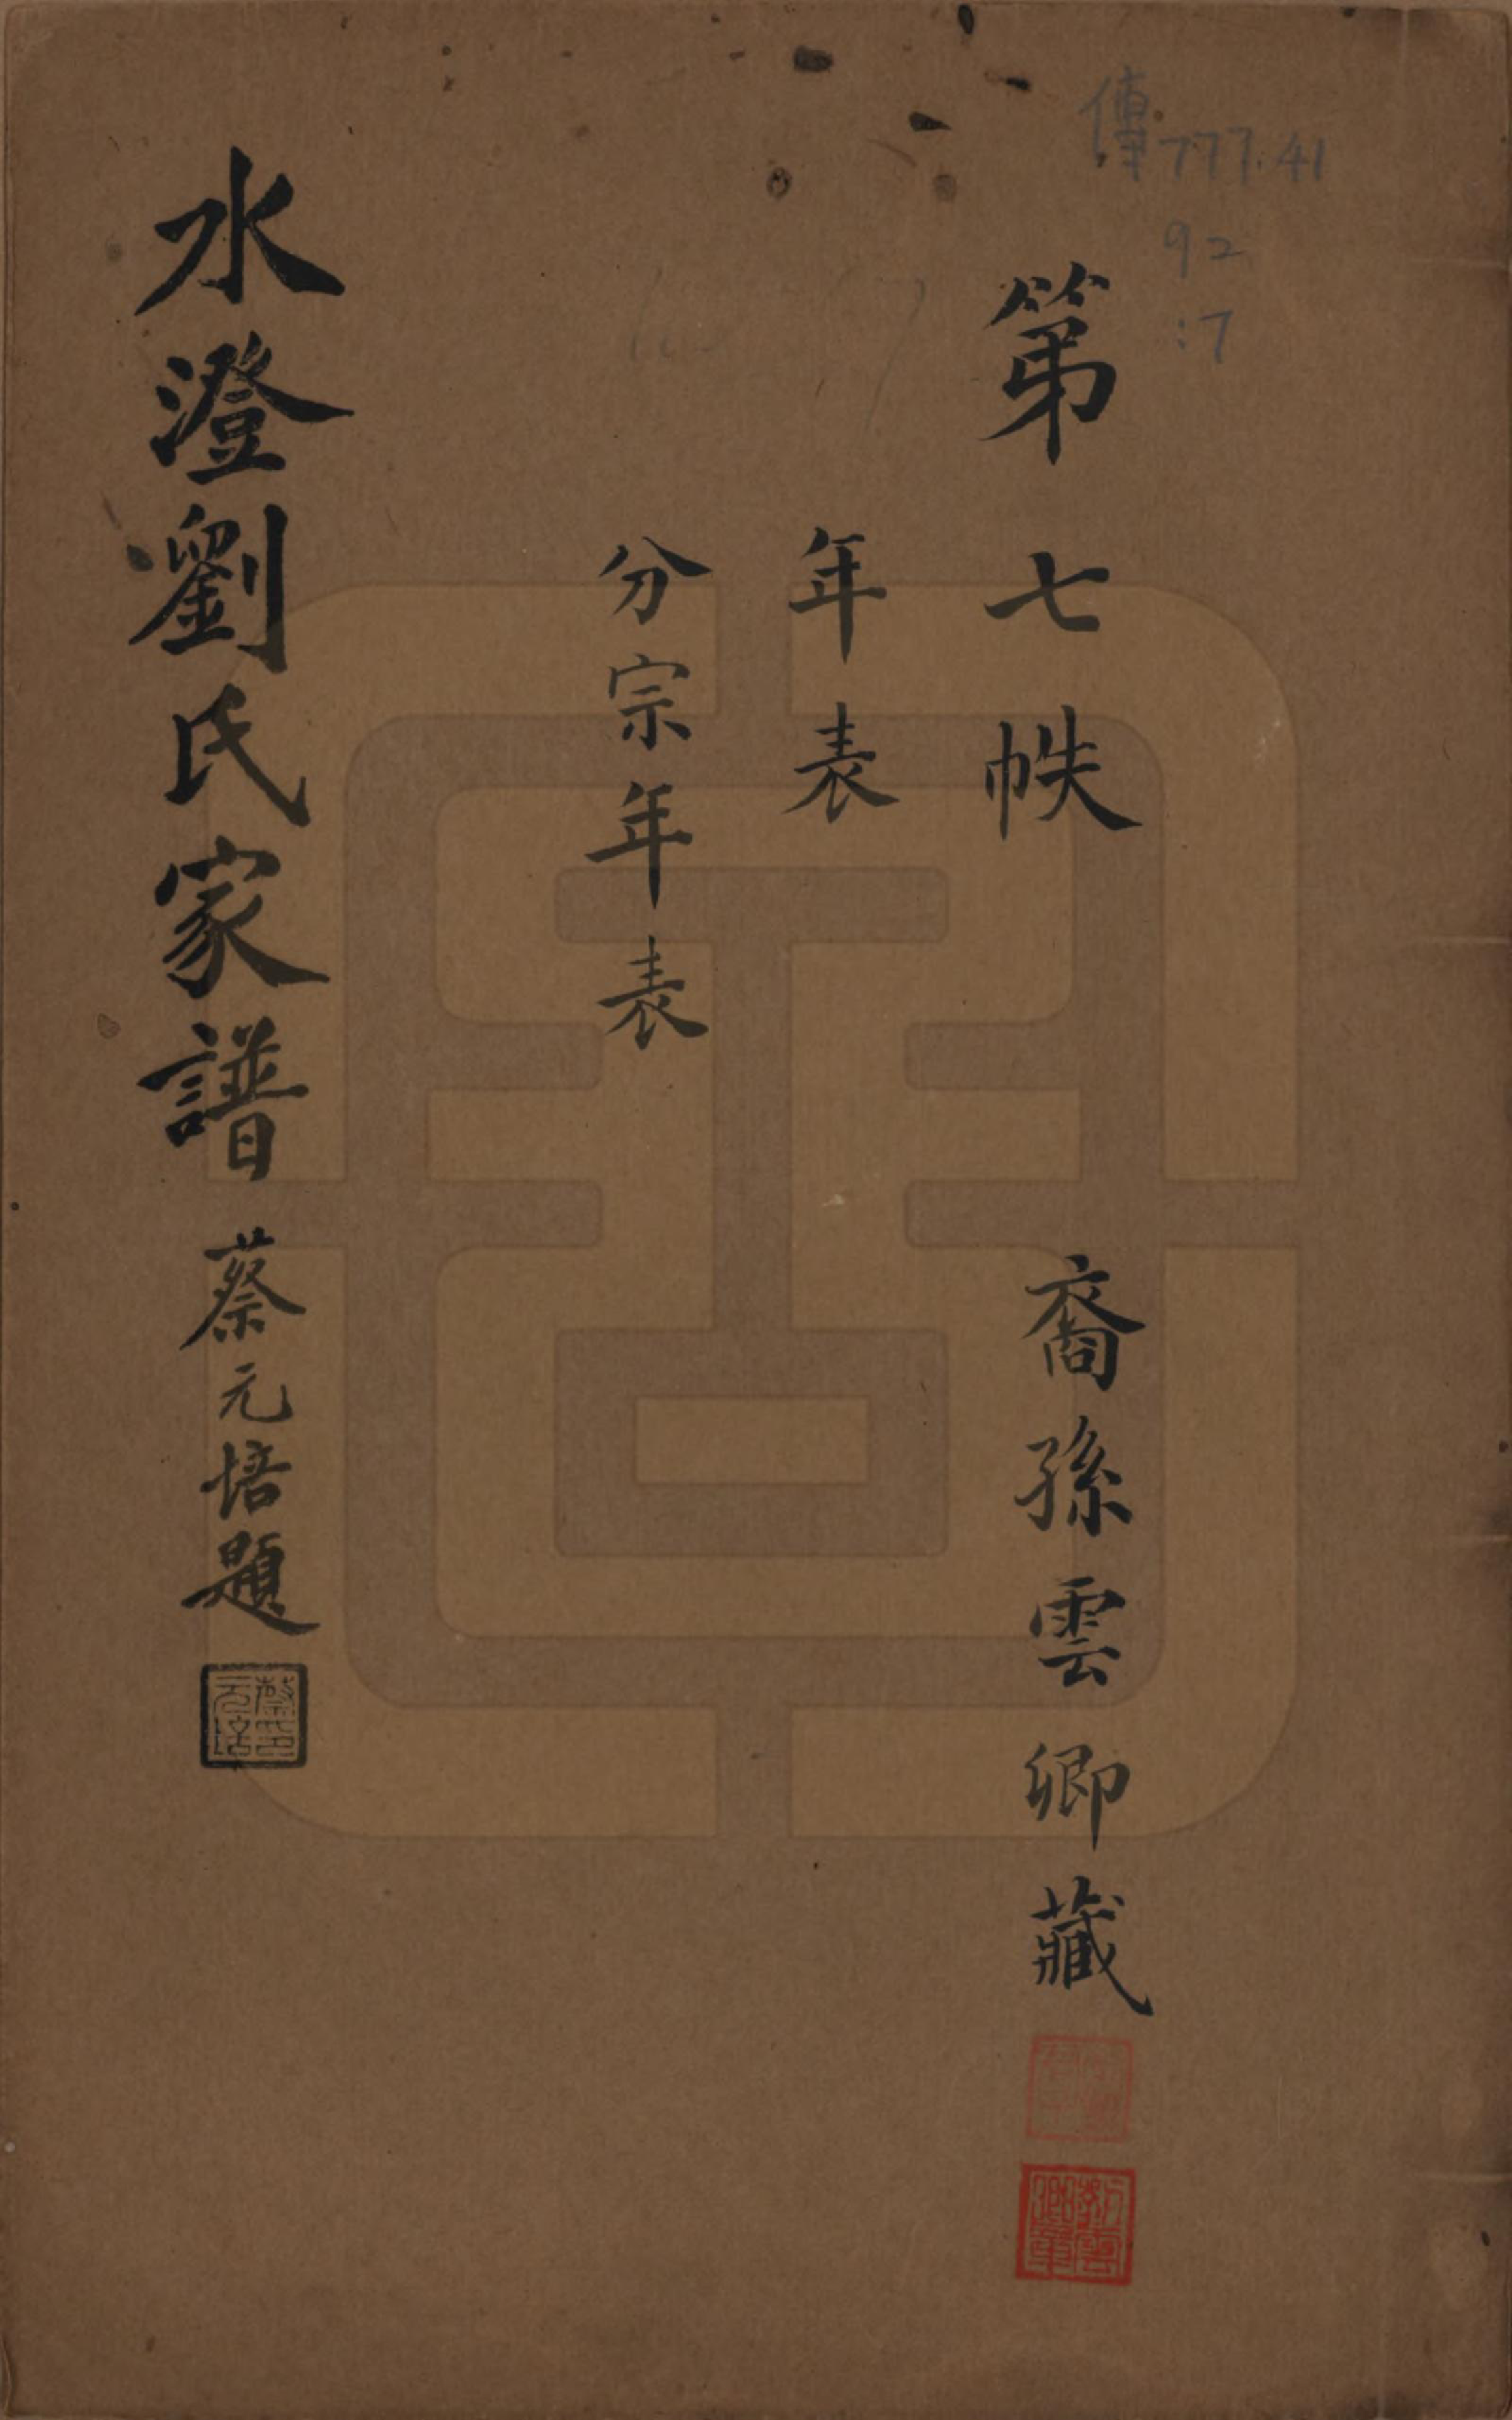 傳777.41
92
:7
第七帙
裔孫雲卿藏
年表
分宗年表
水澄劉氏家譜
蔡元培題
蔡元培印